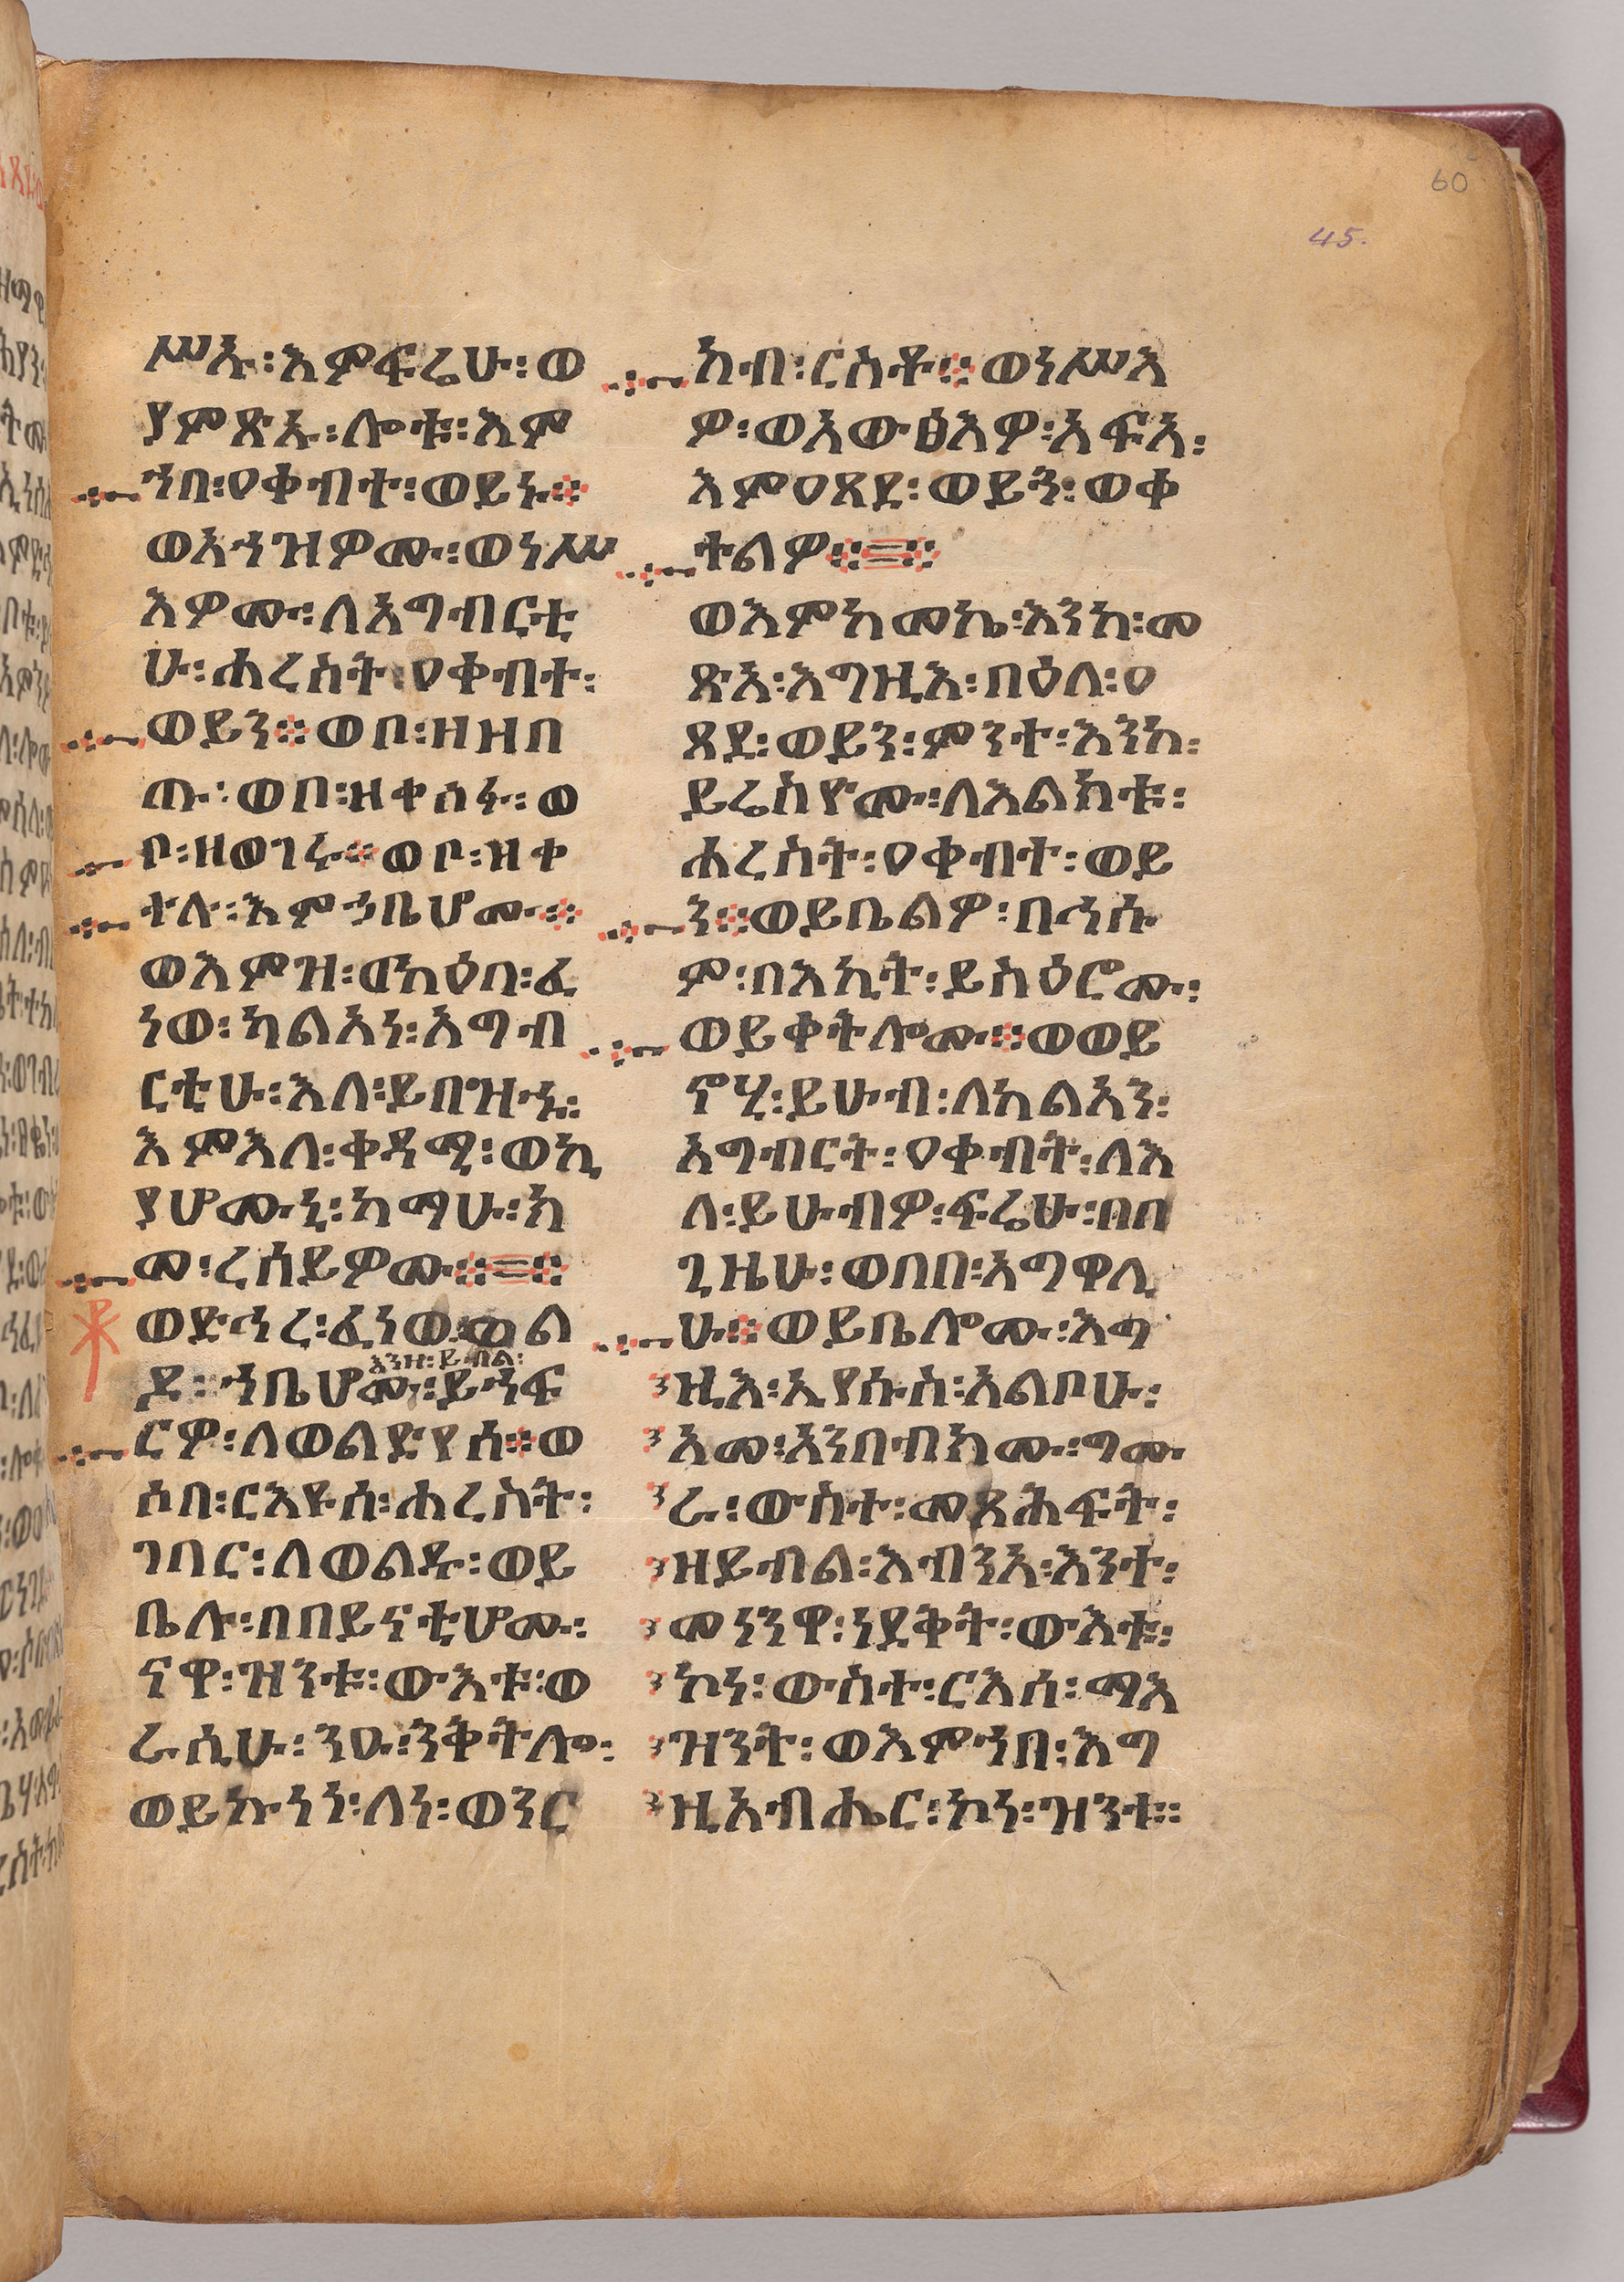 60
45.
ሥኡ፡እምፍሬሁ፡ወ
ያምጽኡ፡ሎቱ፡እም
ኀበ፡ዐቀብተ፡ወይኑ፨
ወአኀዝዎሙ፡ወነሥ
እዎሙ፡ለአግብርቲ
ሁ፡ሐረስት፡ዐቀብተ፡
ወይን፨ወቦ፡ዘዘበ
ጡ፡ወቦ፡ዘቀሰፉ፡ወ
ቦ፡ዘወገሩ፨ወቦ፡ዘቀ
ተሉ፡እምኃቤሆሙ፨
ወእምዝ፡ዎከዕበ፡ፈ
ነወ፡ካልአነ፡አግብ
ርቲሁ፡እለ፡ይበዝኁ፡
እምእለ፡ቀዳሚ፡ወኪ
ያሆሙኒ፡ከማሁ፡ከ
መ፡ረሰይዎሙ፨፡=፨
ወድኅረ፡ፈነወ፡ወል
እንዘ፡ይብል፡
ዶ፡ኀቤሆሙ፡ይኀፍ
ርዎ፡ለወልድየሰ፨ወ
ሶበ፡ርእዩሰ፡ሐረስት፡
ገባር፡ለወልዱ፡ወይ
ቤሉ፡በበይናቲሆሙ፡
ናዋ፡ዝንቱ፡ውእቱ፡ወ
ራሲሁ፡ንዑ፡ንቅትሎ፡
ወይኩነነ፡ለነ፡ወንር
ከብ፡ርስቶ፨ወነሥእ
ዎ፡ወአውፅእዎ፡አፍአ፡
እምዐጸደ፡ወይን፡ወቀ
ተልዎ፨=፨
ወእምከመኬ፡እንከ፡መ
ጽአ፡እግዚእ፡በዕለ፡ዐ
ጸደ፡ወይን፡ምንተ፡እንከ፡
ይሬስዮሙ፡ለእልክቱ፡
ሐረስት፡ዐቀብተ፡ወይ
ን፨ወይቤልዎ፡በኅሱ
ም፡በእኪት፡ይስዕሮሙ፡
ወይቀትሎሙ፨ወወይ
ኖሂ፡ይሁብ፡ለካልአን፡
አግብርት፡ዐቀብት፡ለእ
ለ፡ይሁብዎ፡ፍሬሁ፡በበ
ጊዜሁ፡ወበበ፡አግዋሊ
ሁ፨ወይቤሎሙ፡እግ
ዚእ፡ኢየሱስ፡አልቦሁ፡
አመ፡አንበብክሙ፡ግሙ
ራ፡ውስተ፡መጸሕፍት፡
ዘይብል፡እብንአ፡እንተ፡
መነንዋ፡ነደቅት፡ውእቱ፡
ኮነ፡ውስተ፡ርእሰ፡ማእ
ዝንት፡ወእምኀበ፡እግ
ዚአብሔር፡ኮነ፡ዝንቱ፡